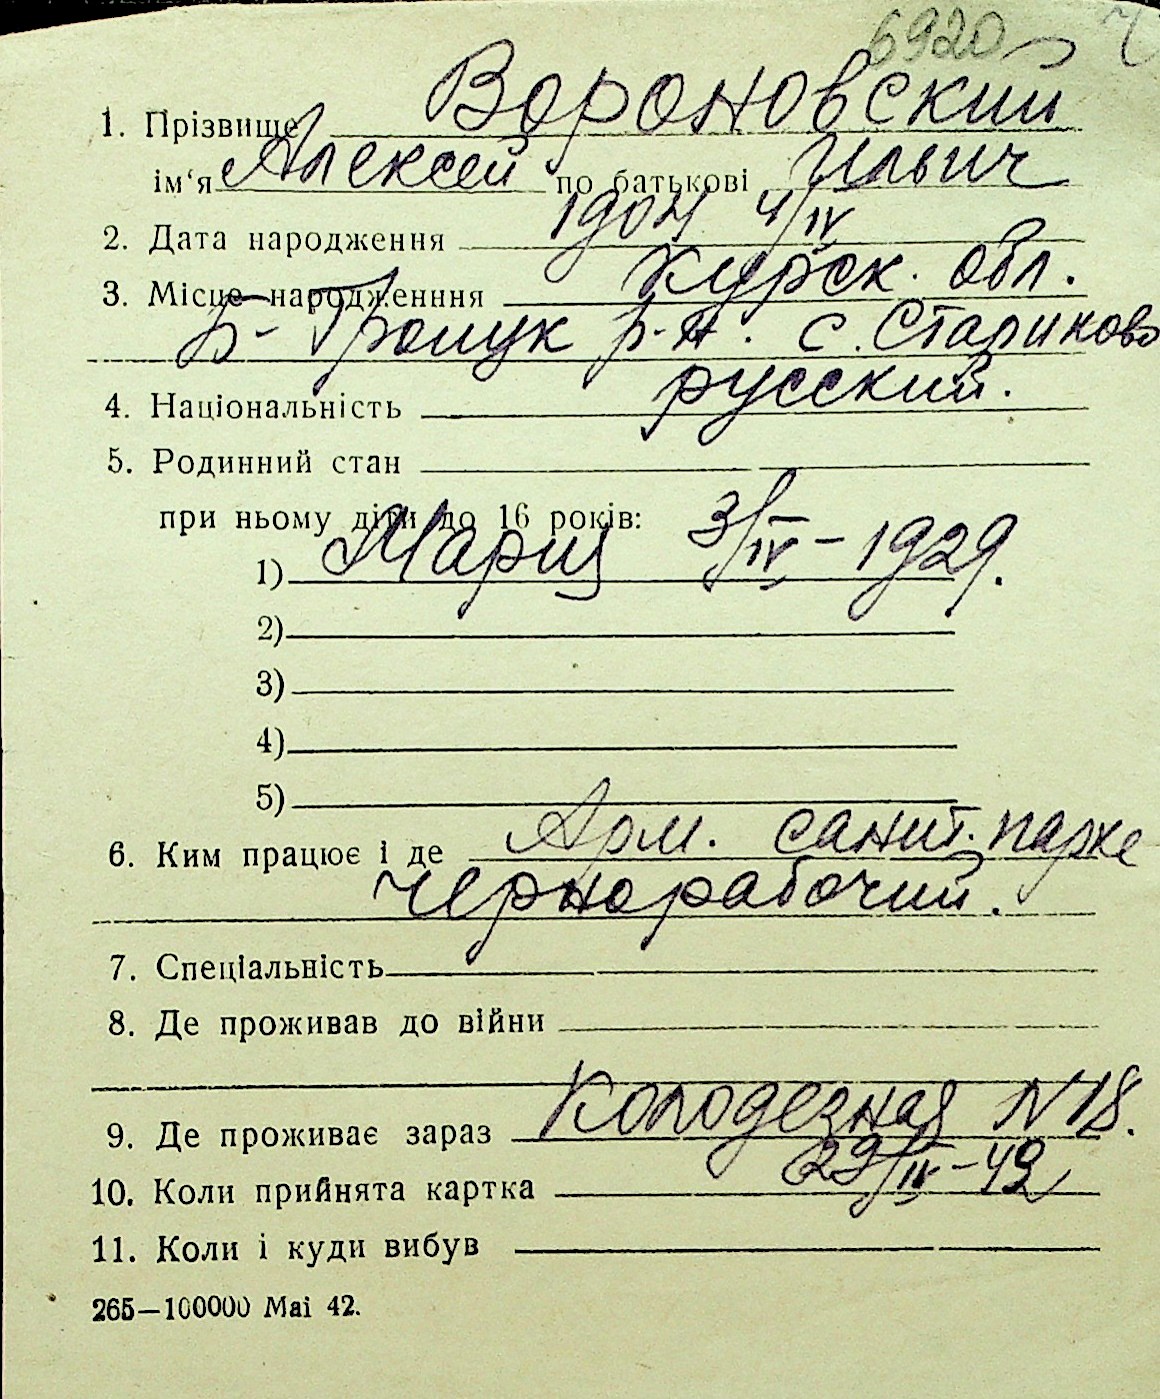 6920
1. Прізвище Вороновский
ім‘я Алексей по батькові Ильич
2. Дата народження 1904 4/IV
3. Місце народженння Курск. обл.
Б- Троицк р-н. с. Стариково
4. Національність русский.
5. Родинний стан
при ньому діти до 16 років:
1) Мария 3/IV – 1929.
2)
3)
4)
5)
6. Ким працює і де Арм. санит. парке
Чернорабочий.
7. Спеціальність
8. Де проживав до війни
9. Де проживає зараз Колодезная N 18.
10. Коли прийнята картка 29/IV – 42
11. Коли і куди вибув
265—100000 Маі 42.